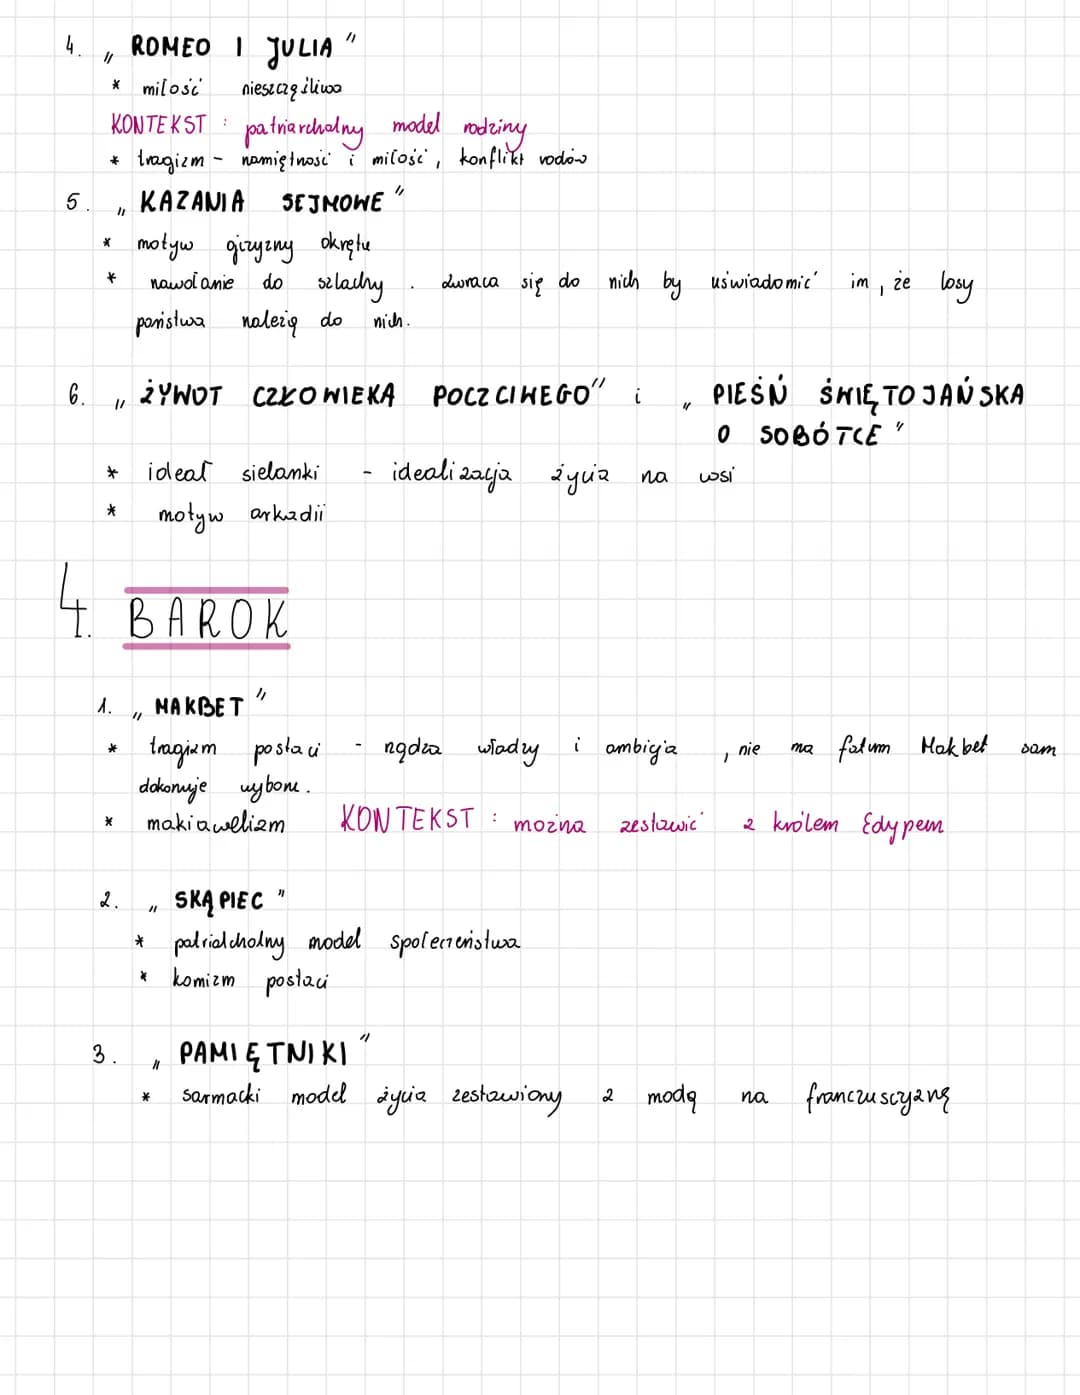 4. „ROMEO I JULIA"
* miłość nieszczęśliwa
KONTEKST : patriarchalny model rodziny
* tragizm - namiętność i miłość, konflikt rodów
5. „KAZANIA SEJMOWE"
* motyw ojczyzny okrętu
* nawołanie do szlachy. Zwraca się do nich by uświadomić im, że losy
państwa należią do nich.
6. „ŻYWOT CZŁOWIEKA POCZCIWEGO" i „PIEŚŃ ŚWIĘTOJAŃSKA
O SOBÓTCE"
* ideał sielanki - idealizacja życia na wsi
* motyw arkadii
4. BAROK
1. „MAKBET"
* tragizm postaci - rządza władzy i ambicja, nie ma fatum Makbet sam
dokonuje wyboru.
* makiawelizm KONTEKST : można zestawić z królem Edypem
2. „SKĄPIEC"
* patrialcholny model społeczeństwa
* komizm postaci
3. „PAMIĘTNIKI"
* sarmacki model życia zestawiony z modą na francuszyznę